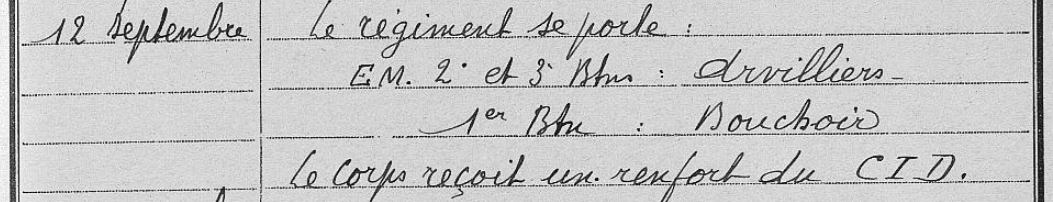 12 Septembre Le régiment se porte :
E.M. 2° et 3° Btns : Arvilliers -
1er Btn : Bouchoir
Le Corps reçoit un renfort du C I D.